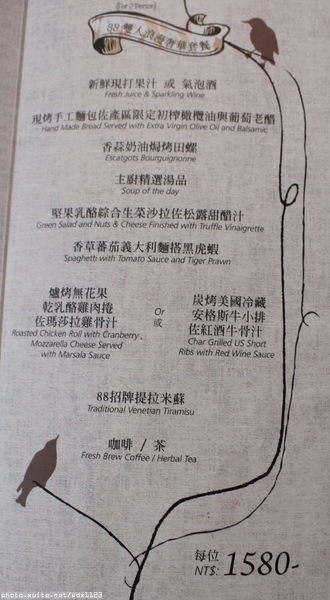 (For 2 Person)
88 雙人浪漫奢華套餐
新鮮現打果汁 或 氣泡酒
Fresh Juice & Sparkling Wine
現烤手工麵包佐產區限定初榨橄欖油與葡萄老醋
Hand Made Bread Served with Extra Virgin Olive Oil and Balsamic
香蒜奶油焗烤田螺
Escatgots Bourguignonne
主廚精選湯品
Soup of the day
堅果乳酪綜合生菜沙拉佐松露甜醋汁
Green Salad and Nuts & Cheese Finished with Truffle Vinaigrette
香草蕃茄義大利麵搭黑虎蝦
Spaghetti with Tomato Sauce and Tiger Prawn
爐烤無花果
乾乳酪雞肉捲
佐瑪莎拉雞骨汁
Roasted Chicken Roll with Cranberry,
Mozzarella Cheese Served
with Marsala Sauce
Or
或
炭烤美國冷藏
安格斯牛小排
佐紅酒牛骨汁
Char Grilled US Short
Ribs with Red Wine Sauce
88招牌提拉米蘇
Traditional Venetian Tiramisu
咖啡 / 茶
Fresh Brew Coffee / Herbal Tea
每位
NT$: 1580-
photo.suite.net/wow1123